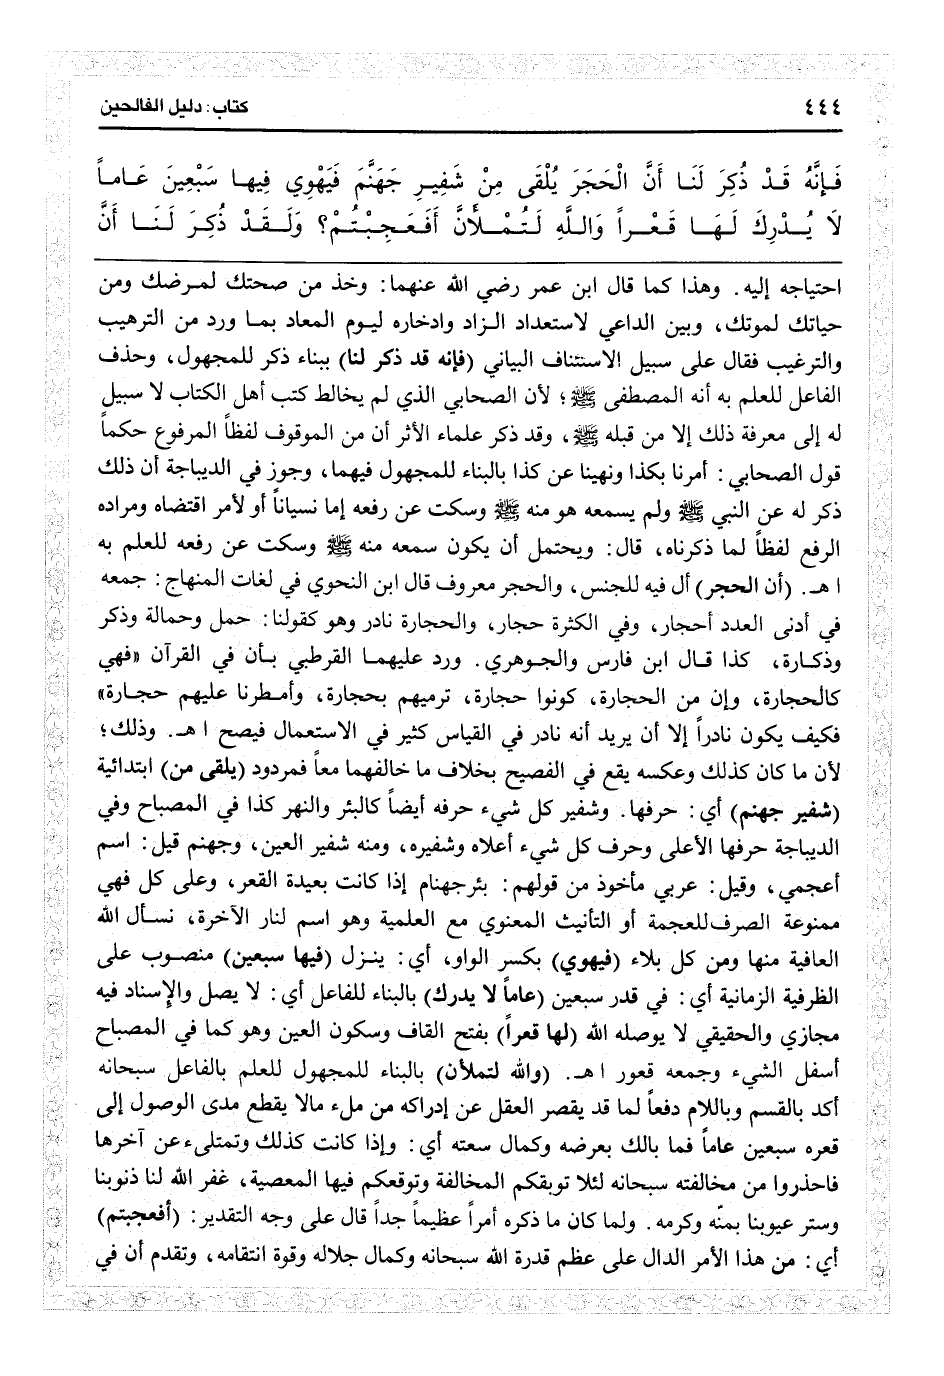 ٤٤٤
كتاب: دليل الفالحين
فَإِنَّهُ قَدْ ذُكِرَ لَنَا أَنَّ الْحَجَرَ يُلْقَى مِنْ شَفِيرِ جَهَنَّمَ فَيَهْوِي فِيها سَبْعِينَ عَاماً
لَا يُدْرِكَ لَهَا قَعْراً وَاللَّهِ لَتُمْلَأَنَّ أَفَعَجِبْتُمْ؟ وَلَقَدْ ذُكِرَ لَنَا أَنَّ
احتياجه إليه. وهذا كما قال ابن عمر رضي الله عنهما: وخذ من صحتك لمرضك ومن
حياتك لموتك، وبين الداعي لاستعداد الزاد وادخاره ليوم المعاد بما ورد من الترهيب
والترغيب فقال على سبيل الاستئناف البياني (فإنه قد ذكر لنا) ببناء ذكر للمجهول، وحذف
الفاعل للعلم به أنه المصطفى ﷺ؛ لأن الصحابي الذي لم يخالط كتب أهل الكتاب لا سبيل
له إلى معرفة ذلك إلا من قبله ﷺ، وقد ذكر علماء الأثر أن من الموقوف لفظاً المرفوع حكماً
قول الصحابي: أمرنا بكذا ونهينا عن كذا بالبناء للمجهول فيهما، وجوز في الديباجة أن ذلك
ذكر له عن النبي ﷺ ولم يسمعه هو منه ﷺ وسكت عن رفعه إما نسياناً أو لأمر اقتضاه ومراده
الرفع لفظاً لما ذكرناه، قال: ويحتمل أن يكون سمعه منه ﷺ وسكت عن رفعه للعلم به
ا هـ. (أن الحجر) أل فيه للجنس، والحجر معروف قال ابن النحوي في لغات المنهاج: جمعه
في أدنى العدد أحجار، وفي الكثرة حجار، والحجارة نادر وهو كقولنا: حمل وحمالة وذكر
وذكارة، كذا قال ابن فارس والجوهري. ورد عليهما القرطبي بأن في القرآن «فهي
كالحجارة، وإن من الحجارة، كونوا حجارة، ترميهم بحجارة، وأمطرنا عليهم حجارة»
فكيف يكون نادراً إلا أن يريد أنه نادر في القياس كثير في الاستعمال فيصح ا هـ. وذلك؛
لأن ما كان كذلك وعكسه يقع في الفصيح بخلاف ما خالفهما معاً فمردود (يلقى من) ابتدائية
(شفير جهنم) أي: حرفها. وشفير كل شيء حرفه أيضاً كالبئر والنهر كذا في المصباح وفي
الديباجة حرفها الأعلى وحرف كل شيء أعلاه وشفيره، ومنه شفير العين، وجهنم قيل: اسم
أعجمي، وقيل: عربي مأخوذ من قولهم: بئرجهنام إذا كانت بعيدة القعر، وعلى كل فهي
ممنوعة الصرف للعجمة أو التأنيث المعنوي مع العلمية وهو اسم لنار الآخرة، نسأل الله
العافية منها ومن كل بلاء (فيهوي) بكسر الواو، أي: ينزل (فيها سبعين) منصوب على
الظرفية الزمانية أي: في قدر سبعين (عاماً لا يدرك) بالبناء للفاعل أي: لا يصل والإسناد فيه
مجازي والحقيقي لا يوصله الله (لها قعراً) بفتح القاف وسكون العين وهو كما في المصباح
أسفل الشيء وجمعه قعور ا هـ. (والله لتملأن) بالبناء للمجهول للعلم بالفاعل سبحانه
أكد بالقسم وباللام دفعاً لما قد يقصر العقل عن إدراكه من ملء مالا يقطع مدى الوصول إلى
قعره سبعين عاماً فما بالك بعرضه وكمال سعته أي: وإذا كانت كذلك وتمتلىء عن آخرها
فاحذروا من مخالفته سبحانه لئلا توبقكم المخالفة وتوقعكم فيها المعصية، غفر الله لنا ذنوبنا
وستر عيوبنا بمنّه وكرمه. ولما كان ما ذكره أمراً عظيماً جداً قال على وجه التقدير: (أفعجبتم)
أي: من هذا الأمر الدال على عظم قدرة الله سبحانه وكمال جلاله وقوة انتقامه، وتقدم أن في